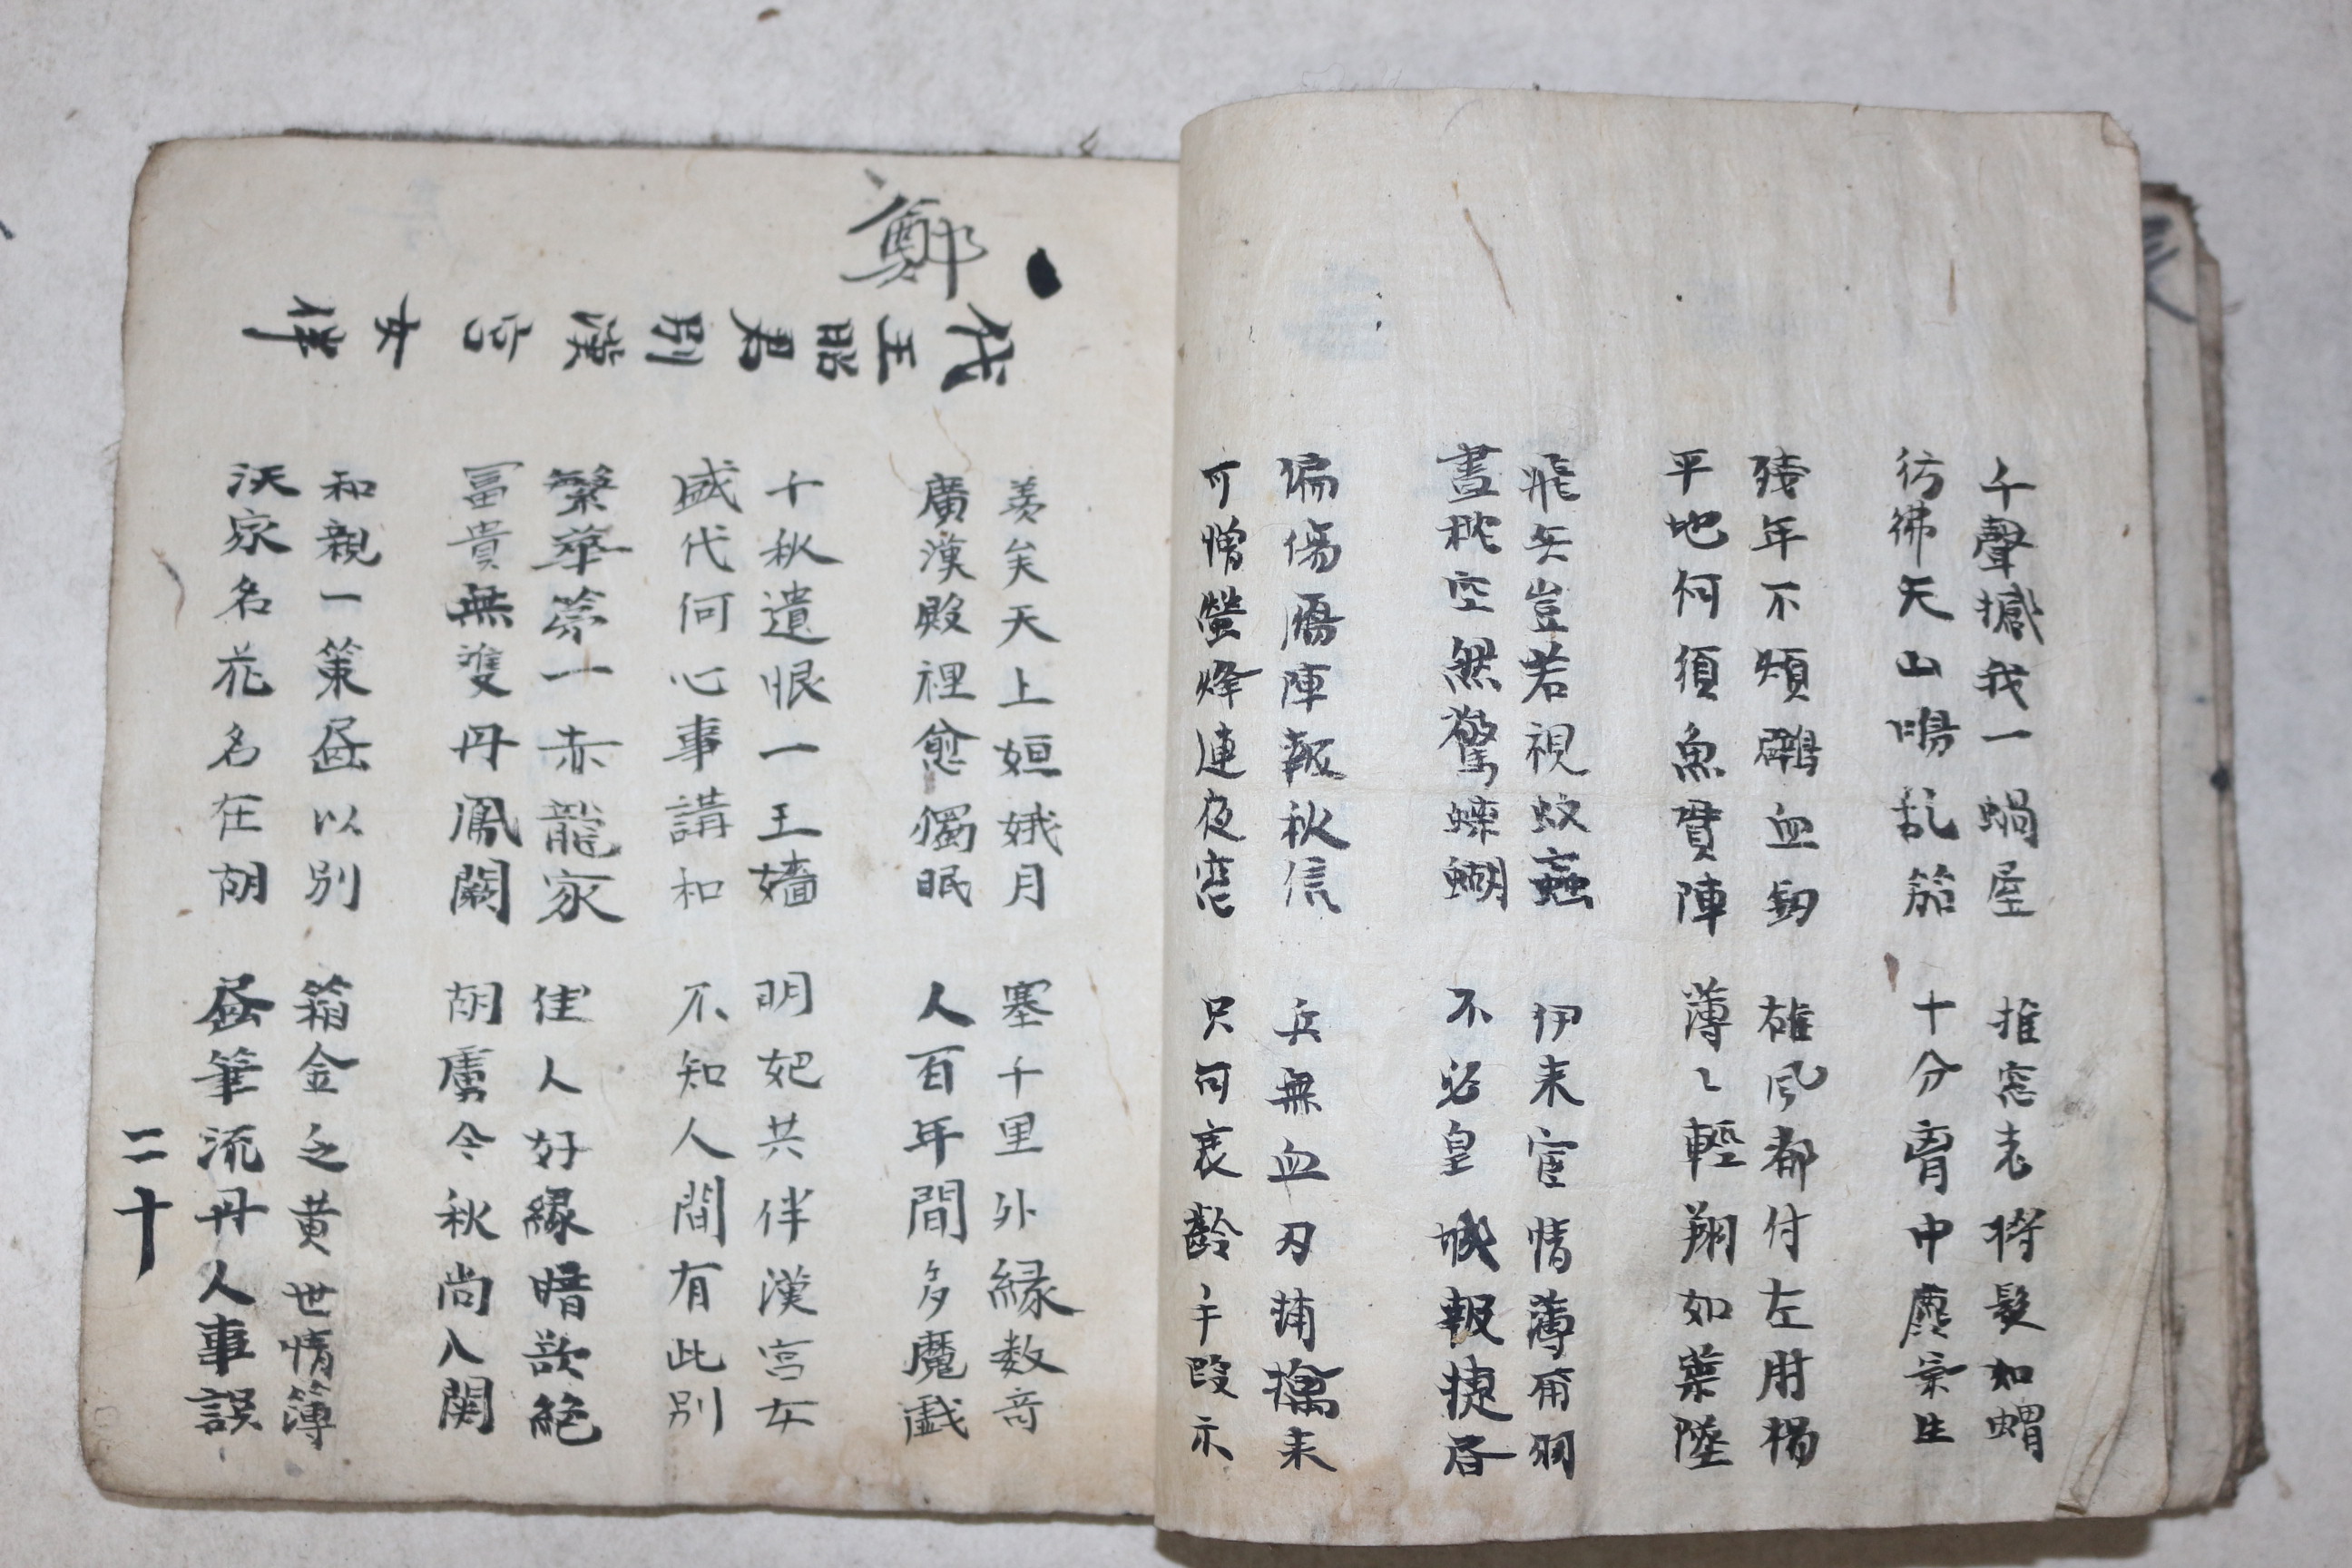 千聲撼我一蝸屋 推窓志將髮如蝟
彷彿天山鳴乱笳 十分胷中塵宗生
殘年不煩血釰 雄風都付左肘楊
平地何須魚貫陣 薄〻輕翔如葉陸
飛兵豈若視蚊蝱 伊來宦情薄甭羽
晝枕空然驚蝶蝴 不必皇城報捷昏
偏傷鴈陣報秋信 兵無血刃誧擒來
可憎螢烽連夜窓 只何衰齡手段示
鄭
代王昭君別漢宮女伴
羨矣天上姮娥月 塞千里外緣数奇
廣漢殿裡愈獨眠 人百年間多魔戱
千秋遺恨一王嬙 明妃共伴漢宮女
盛代何心事講和 不知人間有此別
繁華夢一赤龍家 佳人好緣暗欲絶
冨貴無雙丹鳳闕 胡虜令秋尚入関
和親一策畵以別 箱金之黄世情簿
沃家名花名在胡 畵筆流丹人事誤
二十